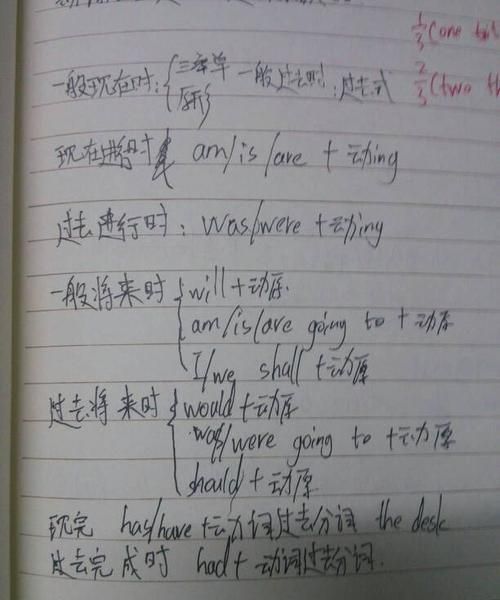 1/3 (one
一般现在时:{三单 一般过去时:过去式
原形
2/3 (two th
现在进行时 am/is/are + 动ing
过去进行时: was/were + 动ing
一般将来时{will + 动原.
am/is/are going to + 动原
I/we shall + 动原
过去将来时{would + 动原
was/were going to + 动原
should + 动原
现完 has/have + 动力词过去分词 the desk
过去完成时 had + 动词过去分词.